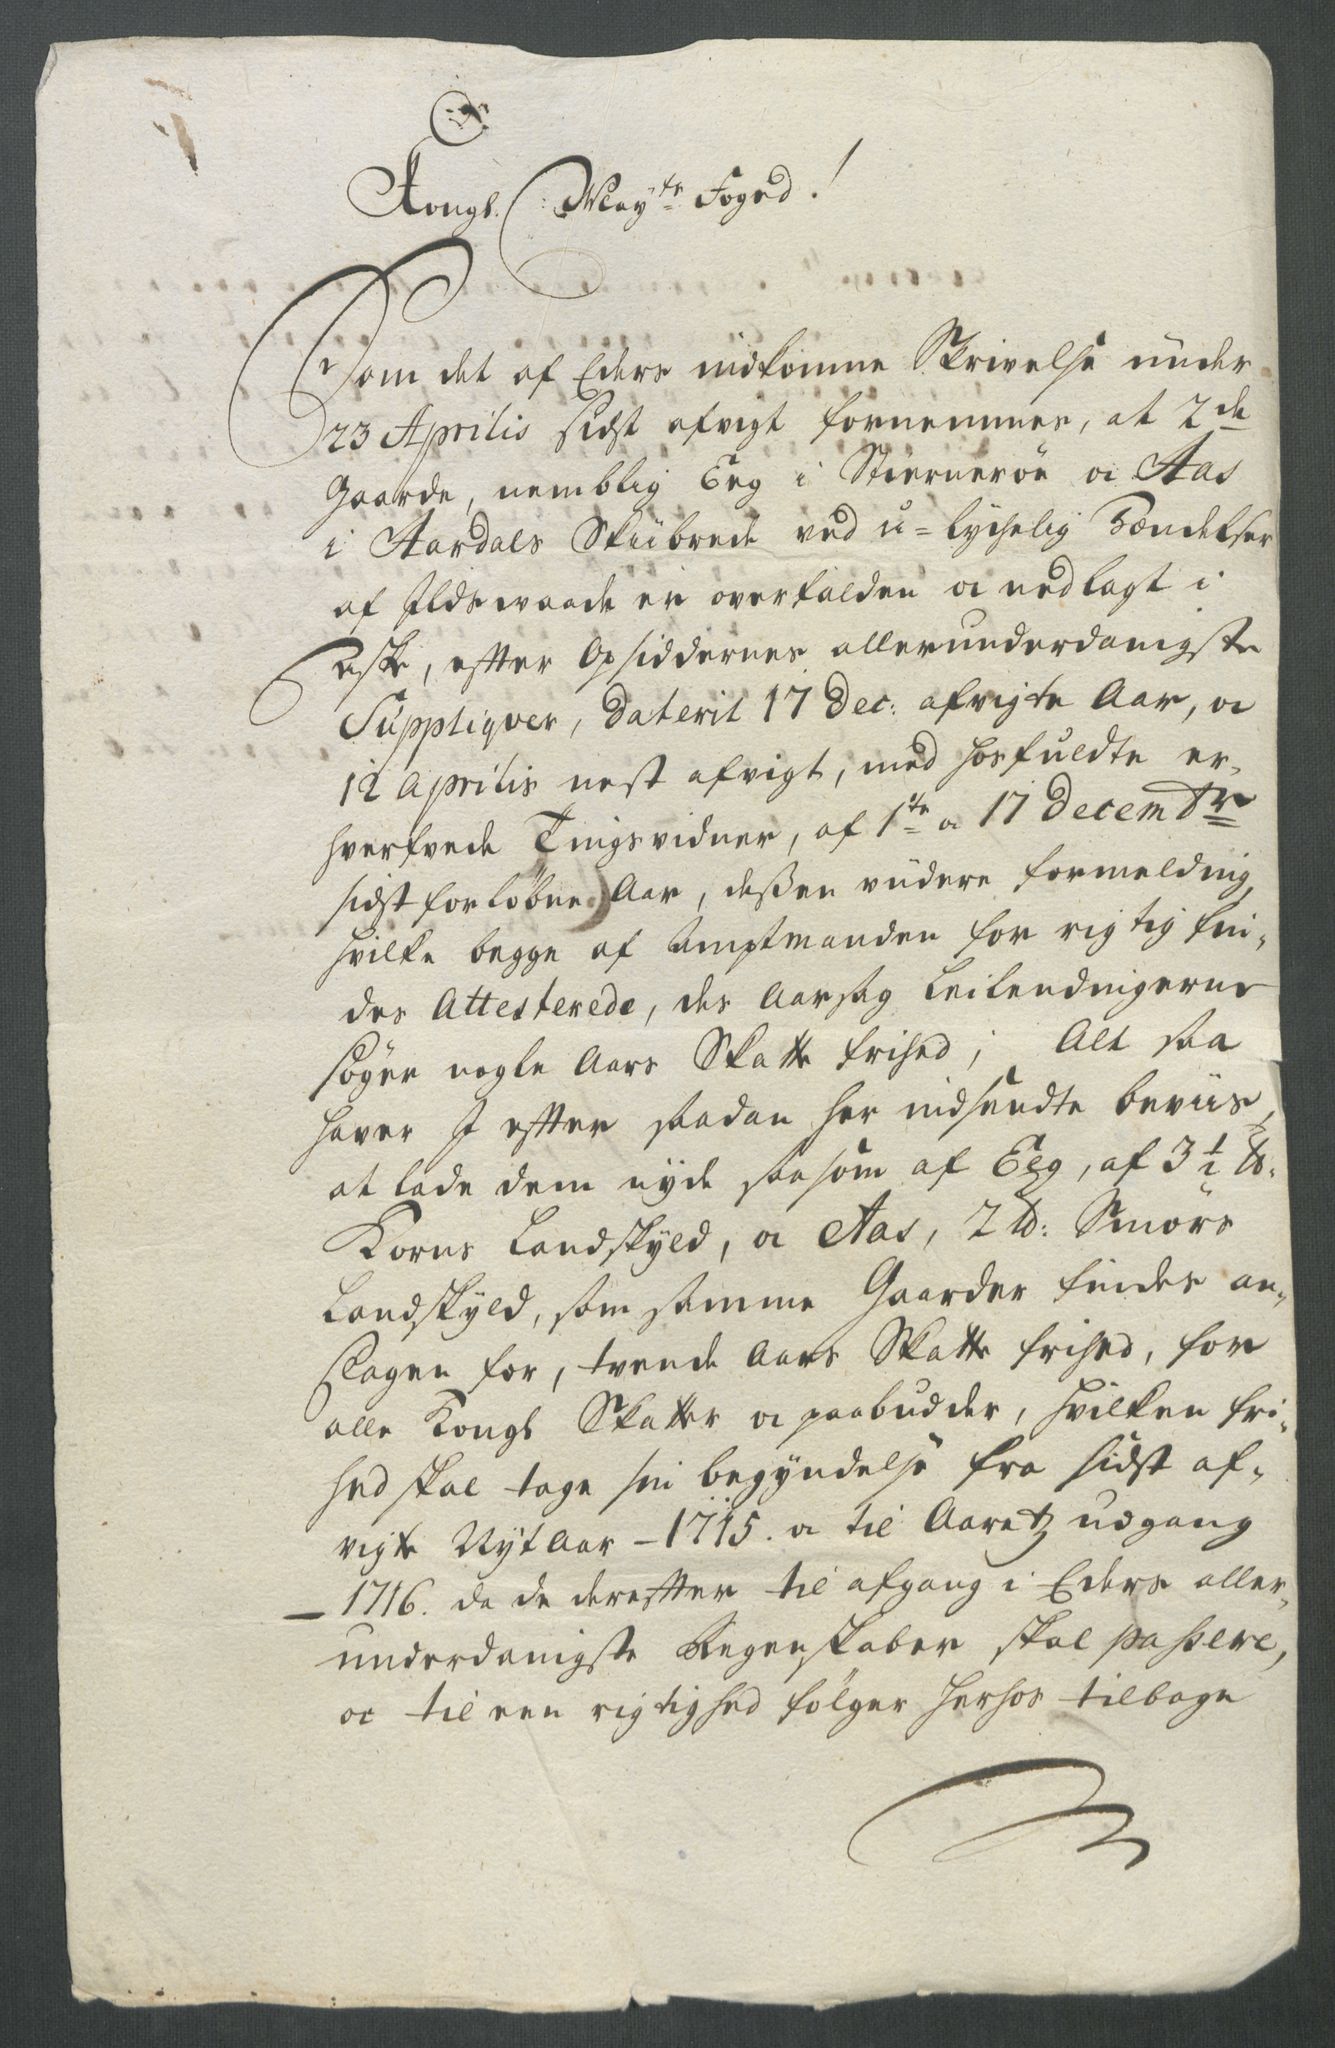 Kongl. May:te Foged!
Som det af Eders indkomne Skrivelse under
23 Aprilis sidst afvigt fornemmes, at 2de
Gaarde, nemblig Eeg i Stiernerøe oc Aas
i Aardals Skiibrede ved u-lychelig hændelser
af Ildswaade er overfalden oc nedlagt i
aske, efter Opsiddernes allerunderdanigste
Suppliqver, daterit 17 Dec: afvigte Aar, oc
12 Aprilis nest afvigt, med hosfuldte er-
hverfvede Tingsvidner, af 1te oc 17 Decembr
sidst forløbne Aar, dessen viidere formelding,
hvilke begge af Amptmanden for rigtig fin-
des Attesterede, des Aarsag Leilendingerne
søger nogle Aars Skatte frihed; Alt saa
haver I efter saadan her indsendte beviis,
at lade dem nyde saasom af Eeg, af 3 1/2 td:
Korns Landskyld, oc Aas, 2 td: Smørs
Landskyld, som samme Gaarder findes an-
slagen for, tvende Aars Skatte frihed, for
alle Kongl Skatter oc paabudder, hvilken fri-
hed skal tage sin begyndelse fra sidst af-
vigte Nyt Aar - 1715. oc til Aaretz udgang
- 1716. da de derefter til afgang i Eders aller-
underdanigste Regenskaber skal passere,
oc til een rigtighed følger herhos tilbage